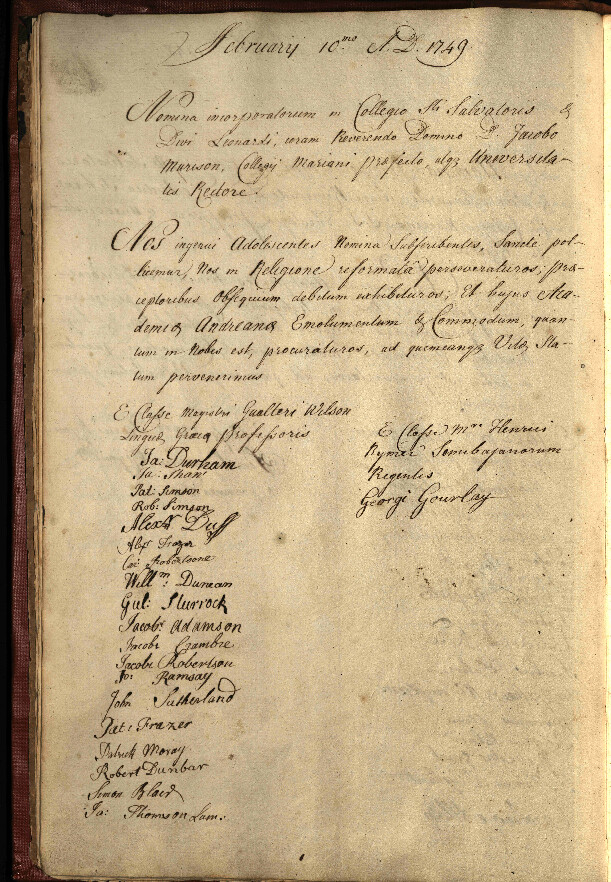 Februarij 10.mo A.D. 1749
Nomina incorporatorum in Collegio Sti Salvatoris &
Divi Leonardi, coram Reverendo Domino D. Jacobo
Murison, Collegij Mariani præfecto, atq Universita-
tis Rectore.
Nos ingenui Adolescentes Nomina Subscribentes, Sancte pol-
licemur, Nos in Religione reformatâ perseveraturos; præ-
ceptoribus Obsequium debitum exhibituros; Et hujus Aca-
demiæ Andreanæ Emolumentum & Commodum, quan-
tum in Nobis est, procuraturos, ad quemcunq Vitæ Sta-
tum pervenerimus
E Classe Magistri Gualteri Wilson
Linguæ Græcæ professoris
Ja: Durham
Ja:
Pat: Simson
Rob: Simson
Alexr Duff
Alexr Frazer
Robertsone
Willm: Duncan
Gul: Sturrock
Jacobs Adamson
Jacobs Crambie
Jacobs Robertson
Jo: Ramsay
John Sutherland
Pat: Frazer
Patrick Moray
Robert Dunbar
Simon Blair
Ja: Thomson Lum:
E Classe Mri Henrici
Rymer Semibajanorum
Regentis
Georgi Gourlay